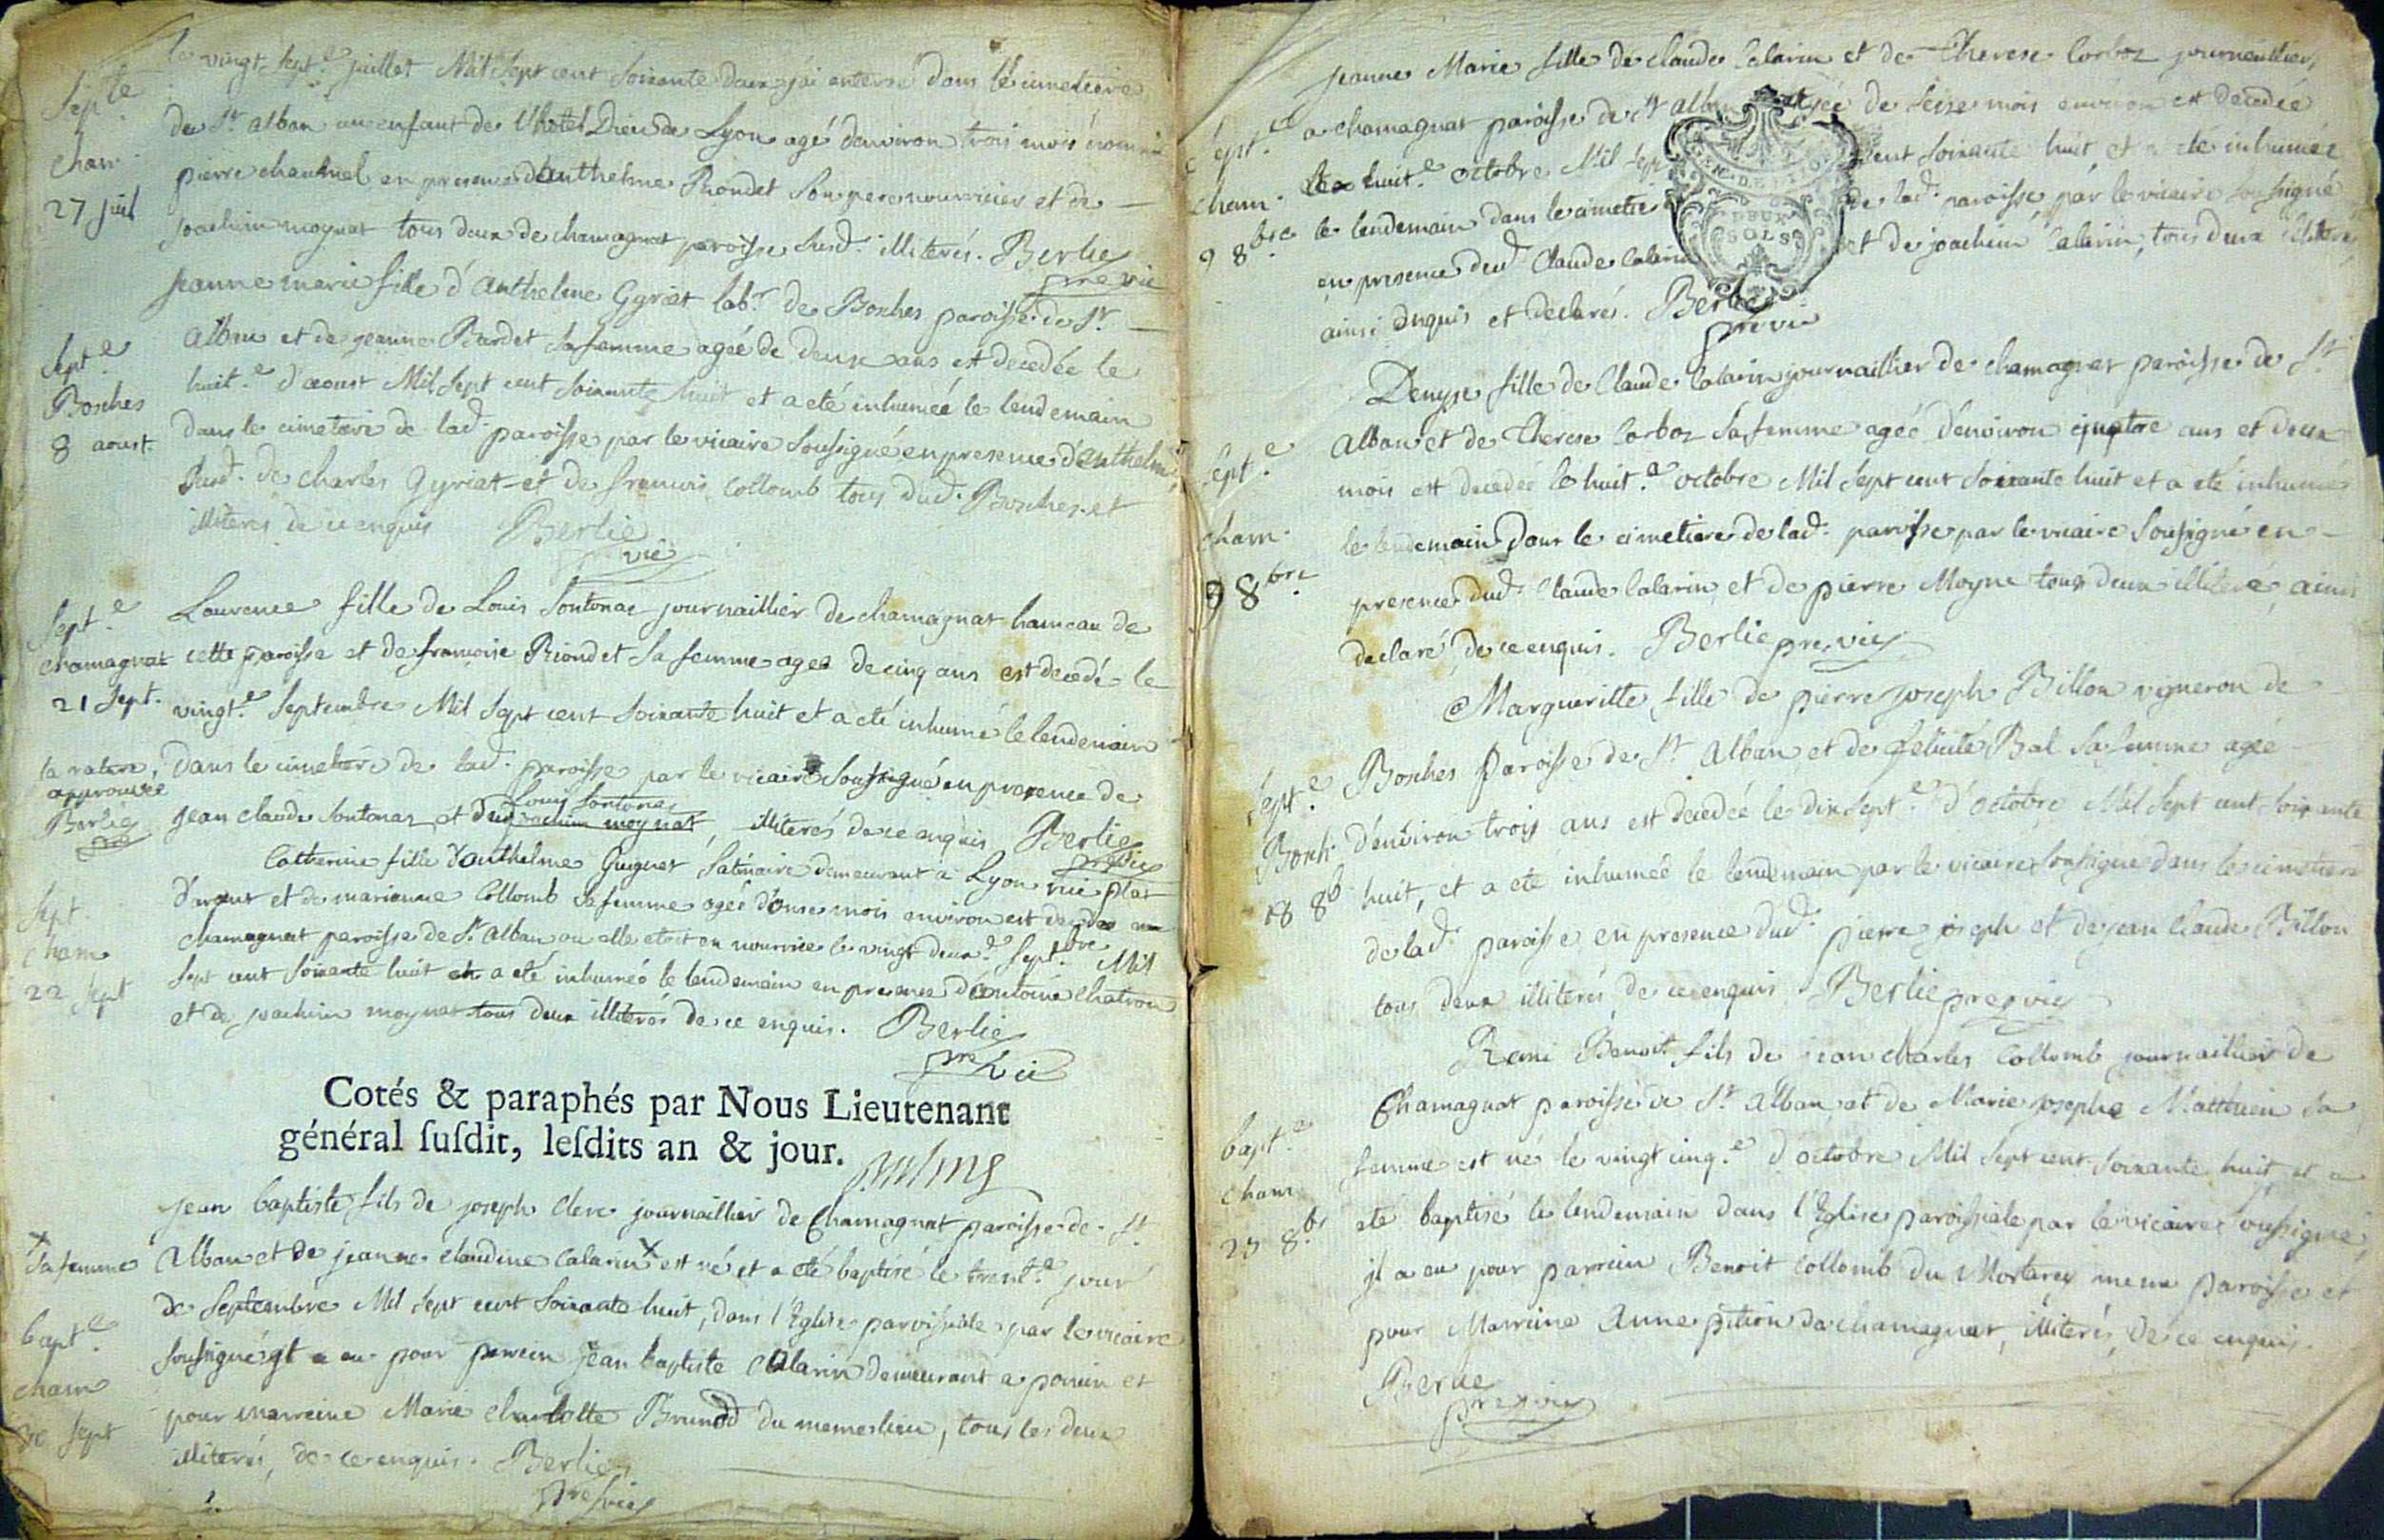 le vingt Sept.e juillet Mil Sept cent Soixante deux jai enterré dans le cimetiere
Septe
de St alban un enfant de l'hotel Dieu de Lyon agé d'environ trois mois nommé
cham
pierre chaumel en presence d'anthelme Riondet Son pere nourricier et de
27 juil
joachim moynat tous deux de chamagnat paroisse Susd. illiterés. Berlie
pre vic
jeanne marie fille d'Anthelme Gyriat labr de Bosches paroisse de St
Sept.e
Alban et de jeanne Bardet Sa femme agée de deux ans est decedée le
Bosches
huit.e d'aoust Mil Sept cent Soixante huit et a eté inhumeé le lendemain
8 aoust
dans le cimetiere de lad. paroisse par le vicaire Soussigné en presence d'enthelme
Susd. de charles Gyriat et de francois Collomb tous dud. Bosches et
illiteres de ce enquis Berlie
vic
Sept.e
Laurence fille de Louis Sontonas journaillier de chamagnat hameau de
chamagnat
cette paroisse et de francoise Riondet Sa femme ageé de cinq ans est decedé le
21 Sept.
vingt.e Septembre Mil Sept cent Soixante huit et a eté inhumé le lendemain
la rature
dans le cimetiere de lad. paroisse par le vicaire Soussigné en presence de
approuvée
Louis Sontonas
Berlie
pre
jean claude Sontonas et dud joachim moynat, illiterés de ce enquis Berlie
pre vic
Catherine fille d'anthelme Guignet Satinaire demeurant a Lyon rue plat
d'argent et de marianne Collomb Sa femme ageé d'onse mois environ est decedeé a
Sept
cham
chamagnat paroisse de St alban ou elle etoit en nourrice le vingt deux.e Sept.bre Mil
22 Sept
Sept cent Soixante huit et a eté inhumeé le lendemain en presence d'Antoine Chatron
et de joachim moynat tous deux illiterés de ce enquis. Berlie
pre vic
Cotés & paraphés par Nous Lieutenant
général ſuſdit, leſdits an & jour.
jean baptiste fils de joseph Clerc journaillier de Chamagnat paroisse de St
x
Sa femme
Alban et de jeanne claudine Calarin x est né et a eté baptisé le trent.e jour
de Septembre Mil Sept cent Soixante huit, dans l'Eglise paroissiale par le vicaire
bapt.e
Soussigné jl a eu pour parrein jean baptiste Calarin demeurant a poncin et
cham
30 Sept
pour marreine Marie Charlotte Brunod du meme lieu, tous les deux
illiterés, de ce enquis. Berlie
pre vic
jeanne Marie fille de claude Calarin et de Therese Corboz journaillier,
Sept.e
a chamagnat paroisse de St alban agée de Seise mois environ est decedée
cham.
le huit.e octobre Mil Sept cent Soixante huit et a eté inhumée
9 8bre
le lendemain dans le cimetiere de lad. paroisse par le vicaire Soussigné
GEN. DE LYON
DEUX
SOLS
en presence dud Claude Calarin et de joachim Calarin, tous deux illiterés
ainsi enquis et declarés. Berlie
pre vic
Denyse fille de Claude Calarin journaillier de chamagnat paroisse de St
Sept.e
Alban et de Therese Corboz Sa femme ageé d'environ quatre ans et deux
mois est decedeé le huit.e octobre Mil Sept cent Soixante huit et a eté inhumeé
cham.
le lendemain dans le cimetiere de lad. paroisse par le vicaire Soussigné en
9 8bre
presence dud. Claude Calarin et de pierre Moyne tous deux illiteré, ainsi
declaré de ce enquis. Berlie pre vic
Margueritte fille de pierre joseph Billon vigneron de
Sept.e
Bosches Paroisse de St Alban et de felicité Bal Sa femme ageé
Bosch.
d'environ trois ans est decedeé le dix Sept.e d'octobre Mil Sept cent Soixante
18 8b
huit, et a eté inhumeé le lendemain par le vicaire Soussigné dans le cimetiere
de lad. paroisse en presence dud. pierre joseph et de jean Claude Billon
tous deux illiterés de ce enquis Berlie pre vic
Remi Benoit fils de jean charles Collomb journaillier de
Chamagnat paroisse de St Alban et de Marie Josephe Matthieu Sa
bapt.e
femme est né le vingt cinq.e d'octobre Mil Sept cent Soixante huit, et a
cham
eté baptisé le lendemain dans l'Eglise paroissiale par le vicaire Soussigné,
jl a eu pour parrein Benoit Collomb du Mortarey meme paroisse et
pour Marreine Anne pition de chamagnat, illiterés, de ce enquis.
Berlie
pre vic